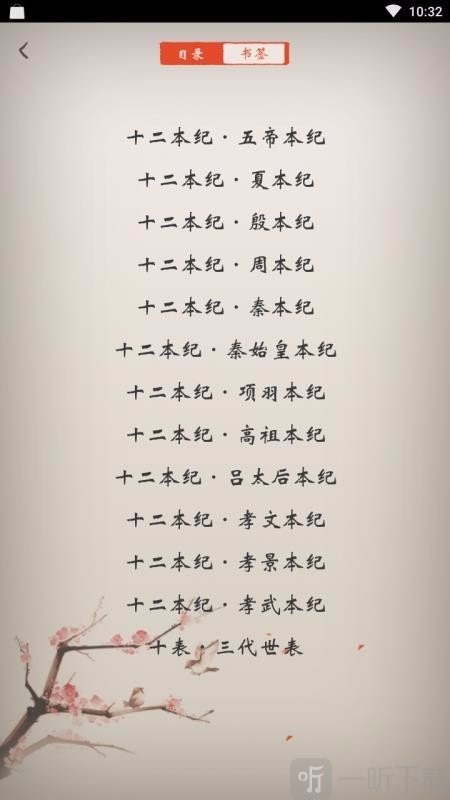 10:32
目录 书签
十二本纪·五帝本纪
十二本纪·夏本纪
十二本纪·殷本纪
十二本纪·周本纪
十二本纪·秦本纪
十二本纪·秦始皇本纪
十二本纪·项羽本纪
十二本纪·高祖本纪
十二本纪·吕太后本纪
十二本纪·孝文本纪
十二本纪·孝景本纪
十二本纪·孝武本纪
十表·三代世表
听 一听下载